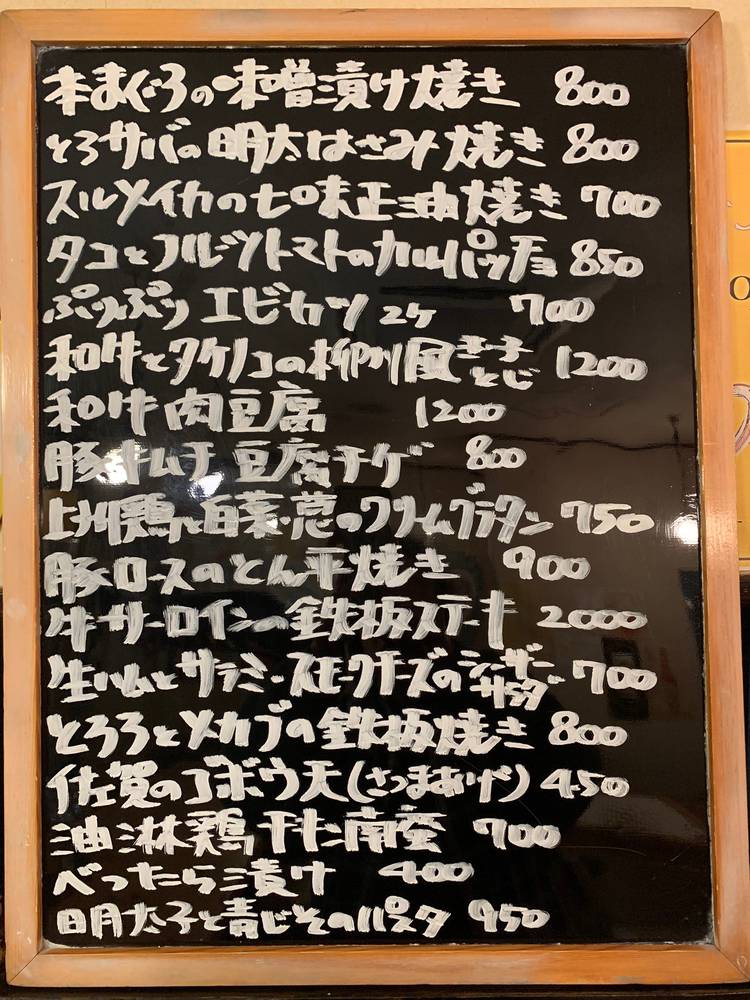 本まぐろの味噌漬け焼き 800
とろサバの明太はさみ焼き 800
スルメイカの七味正油焼き 700
タコとフルーツトマトのカルパッチョ 850
ぷりぷりエビカツ 2ケ 700
和牛とタケノコの柳川風 玉子とじ 1200
和牛肉豆腐 1200
豚キムチ豆腐チゲ 800
上州鶏と白菜・葱のクリームグラタン 750
豚ロースのとん平焼き 900
牛サーロインの鉄板ステーキ 2000
生ハムとサラミ・スモークチーズのシーザーサラダ 700
とろろとメカブの鉄板焼き 800
佐賀のゴボウ天(さつまあげ) 450
油淋鶏 チキン南蛮 700
べったら漬け 400
明太子と青じそのパスタ 950